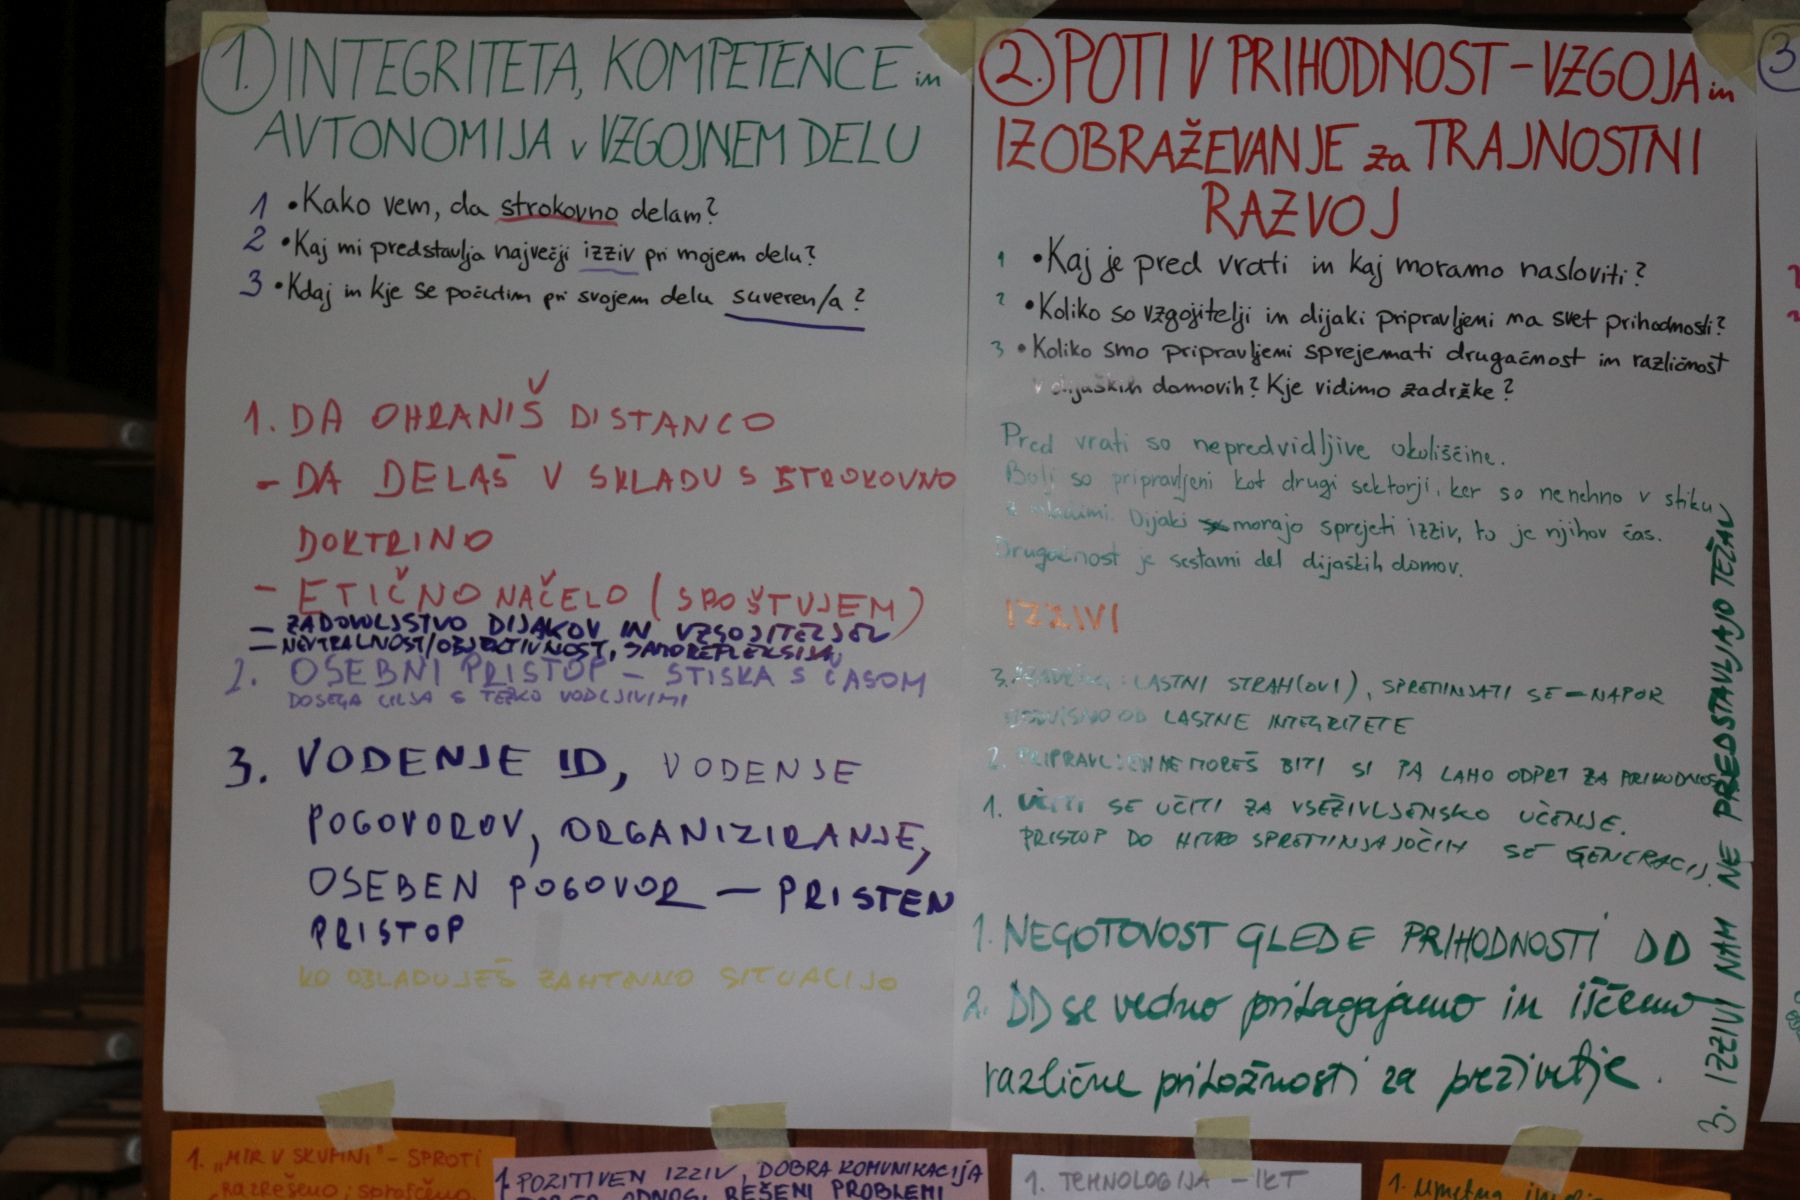 1. INTEGRITETA, KOMPETENCE in
AVTONOMIJA v VZGOJNEM DELU
1 • Kako vem, da strokovno delam?
2 • Kaj mi predstavlja največji izziv pri mojem delu?
3 • Kdaj in kje se počutim pri svojem delu suveren/a?
1. DA OHRANIŠ DISTANCO
- DA DELAŠ V SKLADU S STROKOVNO
DOKTRINO
- ETIČNO NAČELO (SPOŠTUJEM)
- ZADOVOLJSTVO DIJAKOV IN VZGOJITELJEV
- NEVTRALNOST/OBJEKTIVNOST, SAMOREFLEKSIJA
2. OSEBNI PRISTOP - STISKA S ČASOM
DOSEGA CILJA S TEŽKO VODLJIVIMI
3. VODENJE ID, VODENJE
POGOVOROV, ORGANIZIRANJE,
OSEBEN POGOVOR - PRISTEN
PRISTOP
KO OBLADUJEŠ ZAHTEVNO SITUACIJO
2. POTI V PRIHODNOST - VZGOJA in
IZOBRAŽEVANJE za TRAJNOSTNI
RAZVOJ
1 • Kaj je pred vrati in kaj moramo nasloviti?
2 • Koliko so vzgojitelji in dijaki pripravljeni na svet prihodnosti?
3 • Koliko smo pripravljeni sprejemati drugačnost in različnost
v dijaških domovih? Kje vidimo zadržke?
Pred vrati so nepredvidljive okoliščine.
Bolj so pripravljeni kot drugi sektorji, ker so nenehno v stiku
z mladimi. Dijaki morajo sprejeti izziv, to je njihov čas.
Drugačnost je sestavni del dijaških domov.
IZZIVI
3. : LASTNI STRAH(OVI), SPREMINJATI SE - NAPOR
ODVISNO OD LASTNE INTEGRITETE
2. PRIPRAVLJEN NE MOREŠ BITI SI PA LAHO ODPRT ZA PRIHODNOST
1. UČITI SE UČITI ZA VSEŽIVLJENSKO UČENJE.
PRISTOP DO HITRO SPREMINJAJOČIH SE GENERACIJ.
1. NEGOTOVOST GLEDE PRIHODNOSTI DD
2. DD se vedno prilagajamo in iščemo
različne priložnosti za preživetje.
3. IZZIVI NAM NE PREDSTAVLJAJO TEŽAV
3
1. "MIR V SKUPINI" - SPROTI
RAZREŠENO,
1. POZITIVEN IZZIV, DOBRA KOMUNIKACIJA
DOBER ODNOS, REŠENI PROBLEMI
1. TEHNOLOGIJA - IKT
1. Umetna